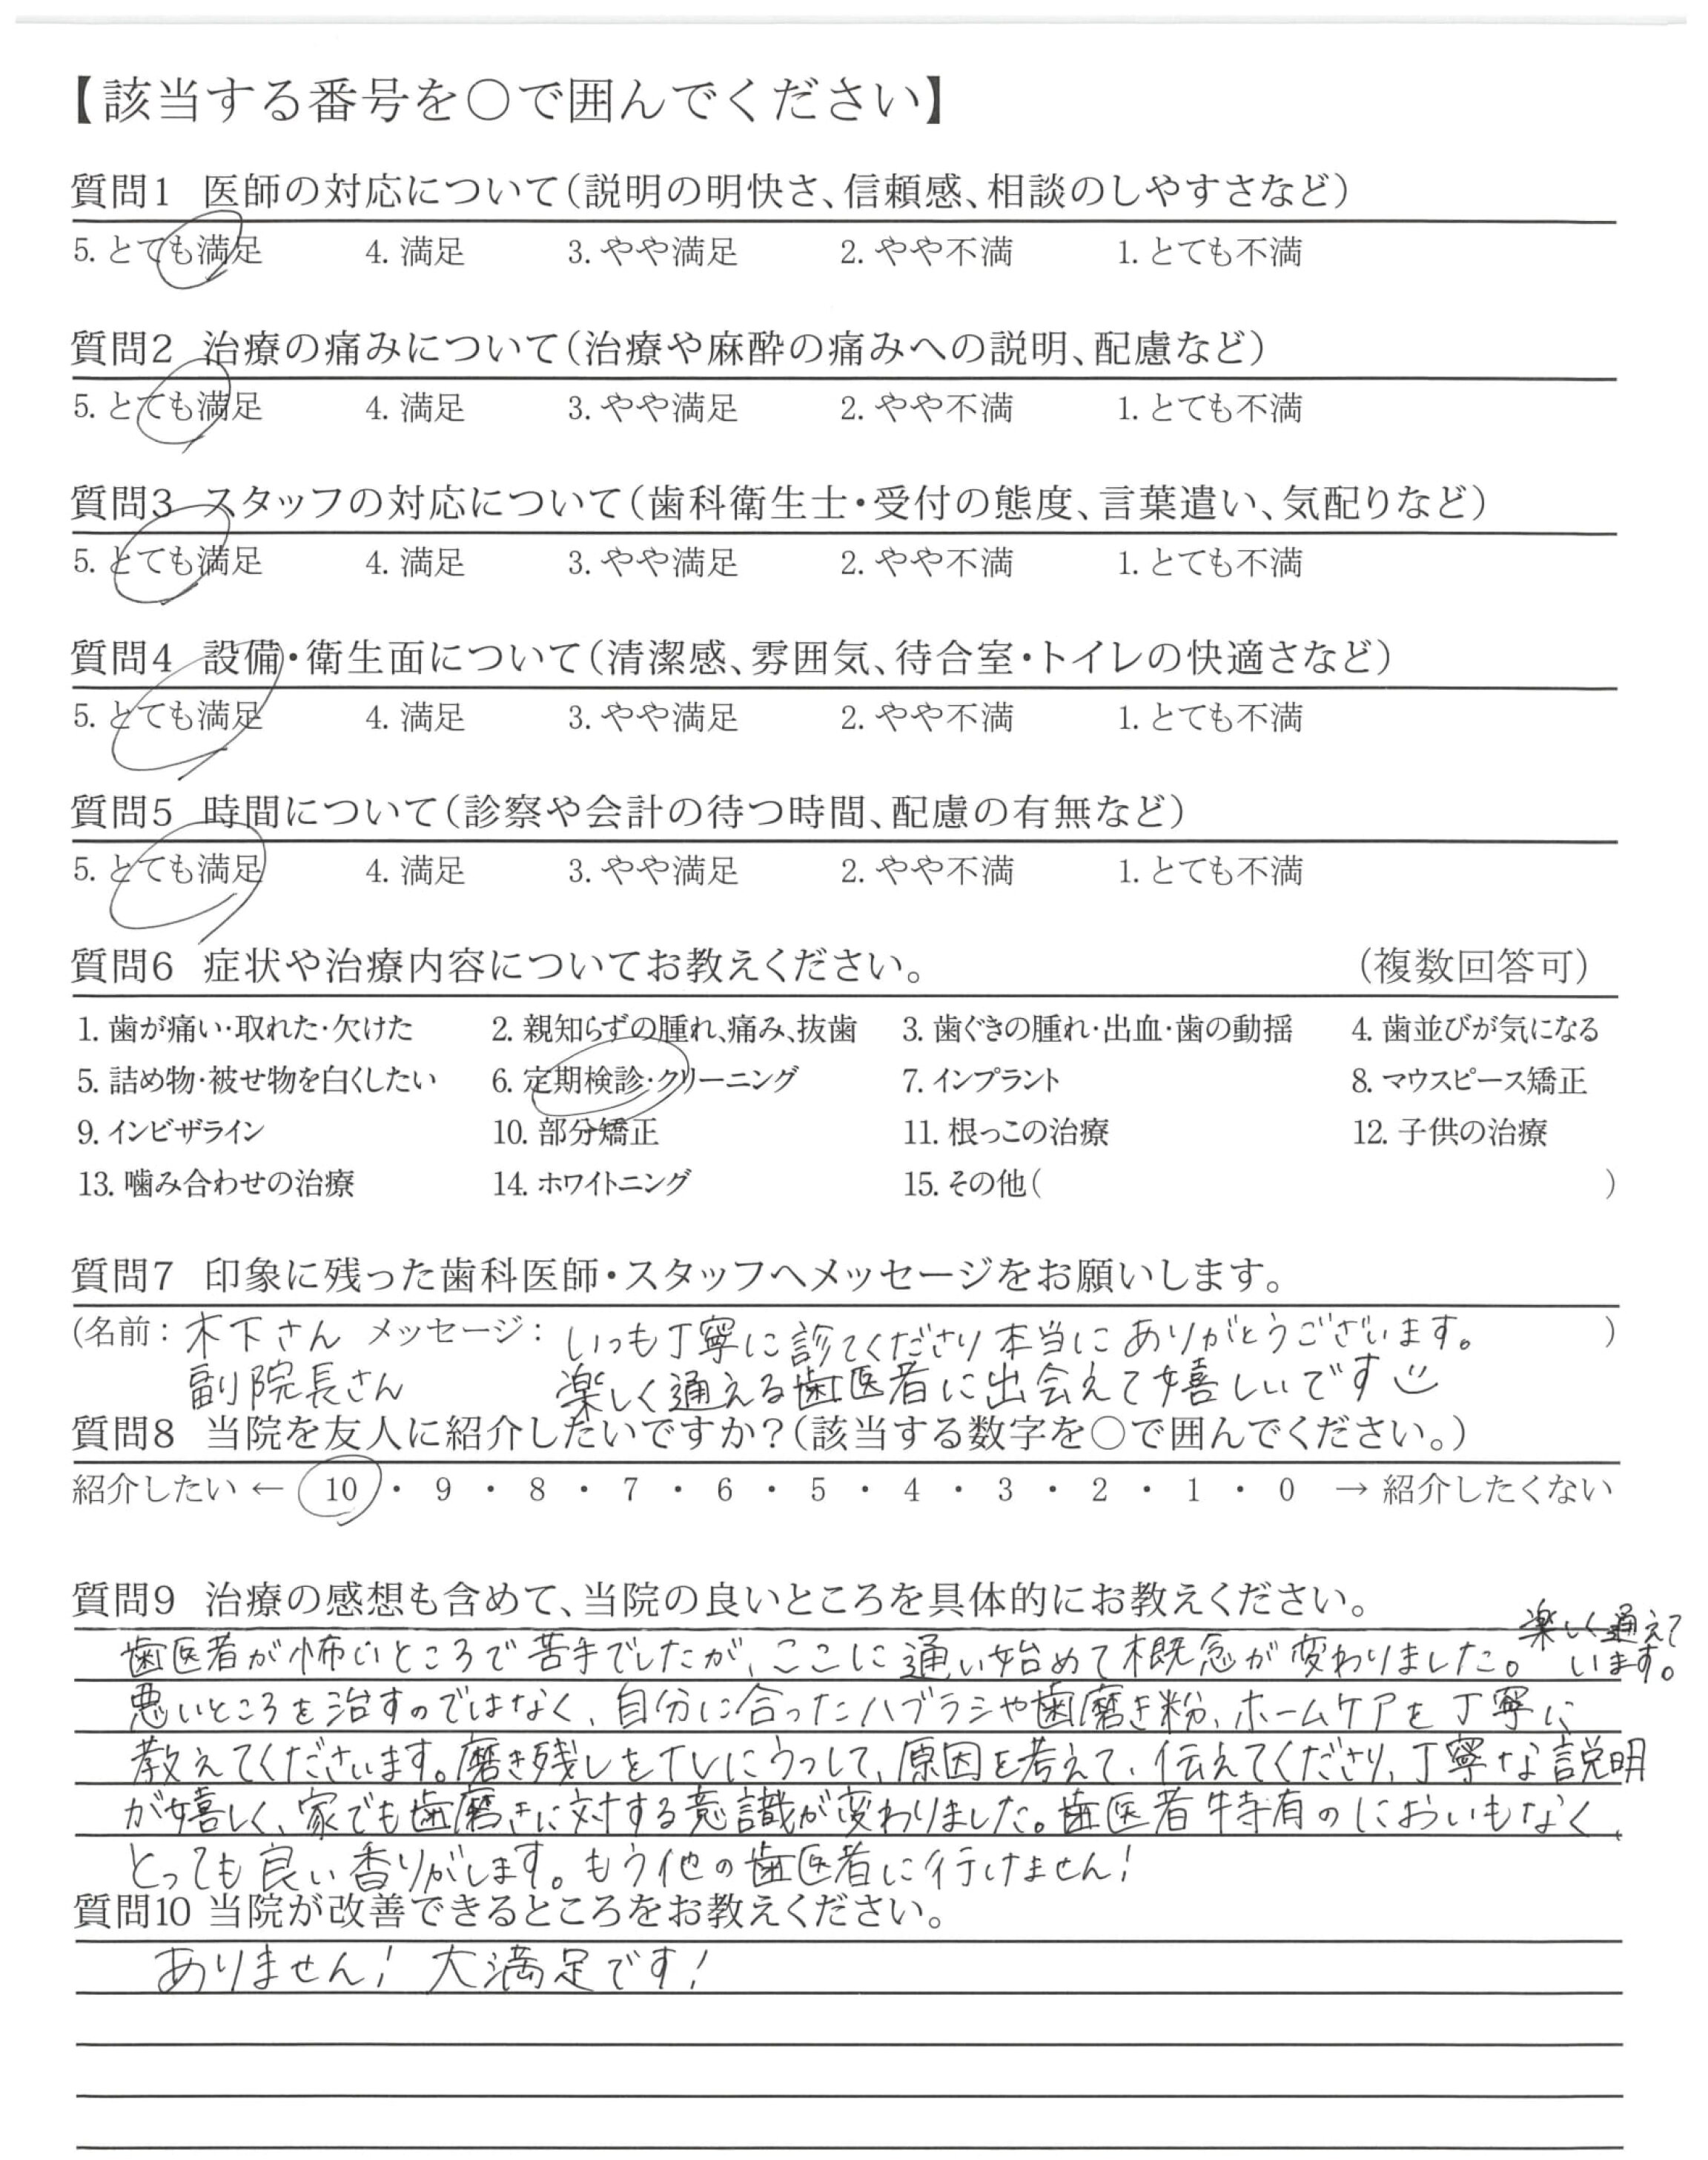 【該当する番号を○で囲んでください】
質問1 医師の対応について(説明の明快さ、信頼感、相談のしやすさなど)
5. とても満足 4. 満足 3. やや満足 2. やや不満 1. とても不満
質問2 治療の痛みについて(治療や麻酔の痛みへの説明、配慮など)
5. とても満足 4. 満足 3. やや満足 2. やや不満 1. とても不満
質問3 スタッフの対応について(歯科衛生士・受付の態度、言葉遣い、気配りなど)
5. とても満足 4. 満足 3. やや満足 2. やや不満 1. とても不満
質問4 設備・衛生面について(清潔感、雰囲気、待合室・トイレの快適さなど)
5. とても満足 4. 満足 3. やや満足 2. やや不満 1. とても不満
質問5 時間について(診察や会計の待つ時間、配慮の有無など)
5. とても満足 4. 満足 3. やや満足 2. やや不満 1. とても不満
質問6 症状や治療内容についてお教えください。 (複数回答可)
1. 歯が痛い・取れた・欠けた 2. 親知らずの腫れ、痛み、抜歯 3. 歯ぐきの腫れ・出血・歯の動揺 4. 歯並びが気になる
5. 詰め物・被せ物を白くしたい 6. 定期検診・クリーニング 7. インプラント 8. マウスピース矯正
9. インビザライン 10. 部分矯正 11. 根っこの治療 12. 子供の治療
13. 噛み合わせの治療 14. ホワイトニング 15. その他( )
質問7 印象に残った歯科医師・スタッフへメッセージをお願いします。
(名前: 木下さん メッセージ: いつも丁寧に診てくださり本当にありがとうございます。 )
副院長さん 楽しく通える歯医者に出会えて嬉しいです
質問8 当院を友人に紹介したいですか?(該当する数字を○で囲んでください。)
紹介したい ← 10 ・ 9 ・ 8 ・ 7 ・ 6 ・ 5 ・ 4 ・ 3 ・ 2 ・ 1 ・ 0 → 紹介したくない
質問9 治療の感想も含めて、当院の良いところを具体的にお教えください。
歯医者が怖いところで苦手でしたが、ここに通い始めて概念が変わりました。 楽しく通えています。
悪いところを治すのではなく、自分に合ったハブラシや歯磨き粉、ホームケアを丁寧に
教えてくださいます。磨き残しをTVにうつして、原因を考えて、伝えてくださり、丁寧な説明
が嬉しく、家でも歯磨きに対する意識が変わりました。歯医者特有のにおいもなく、
とっても良い香りがします。もう他の歯医者に行けません!
質問10 当院が改善できるところをお教えください。
ありません! 大満足です!